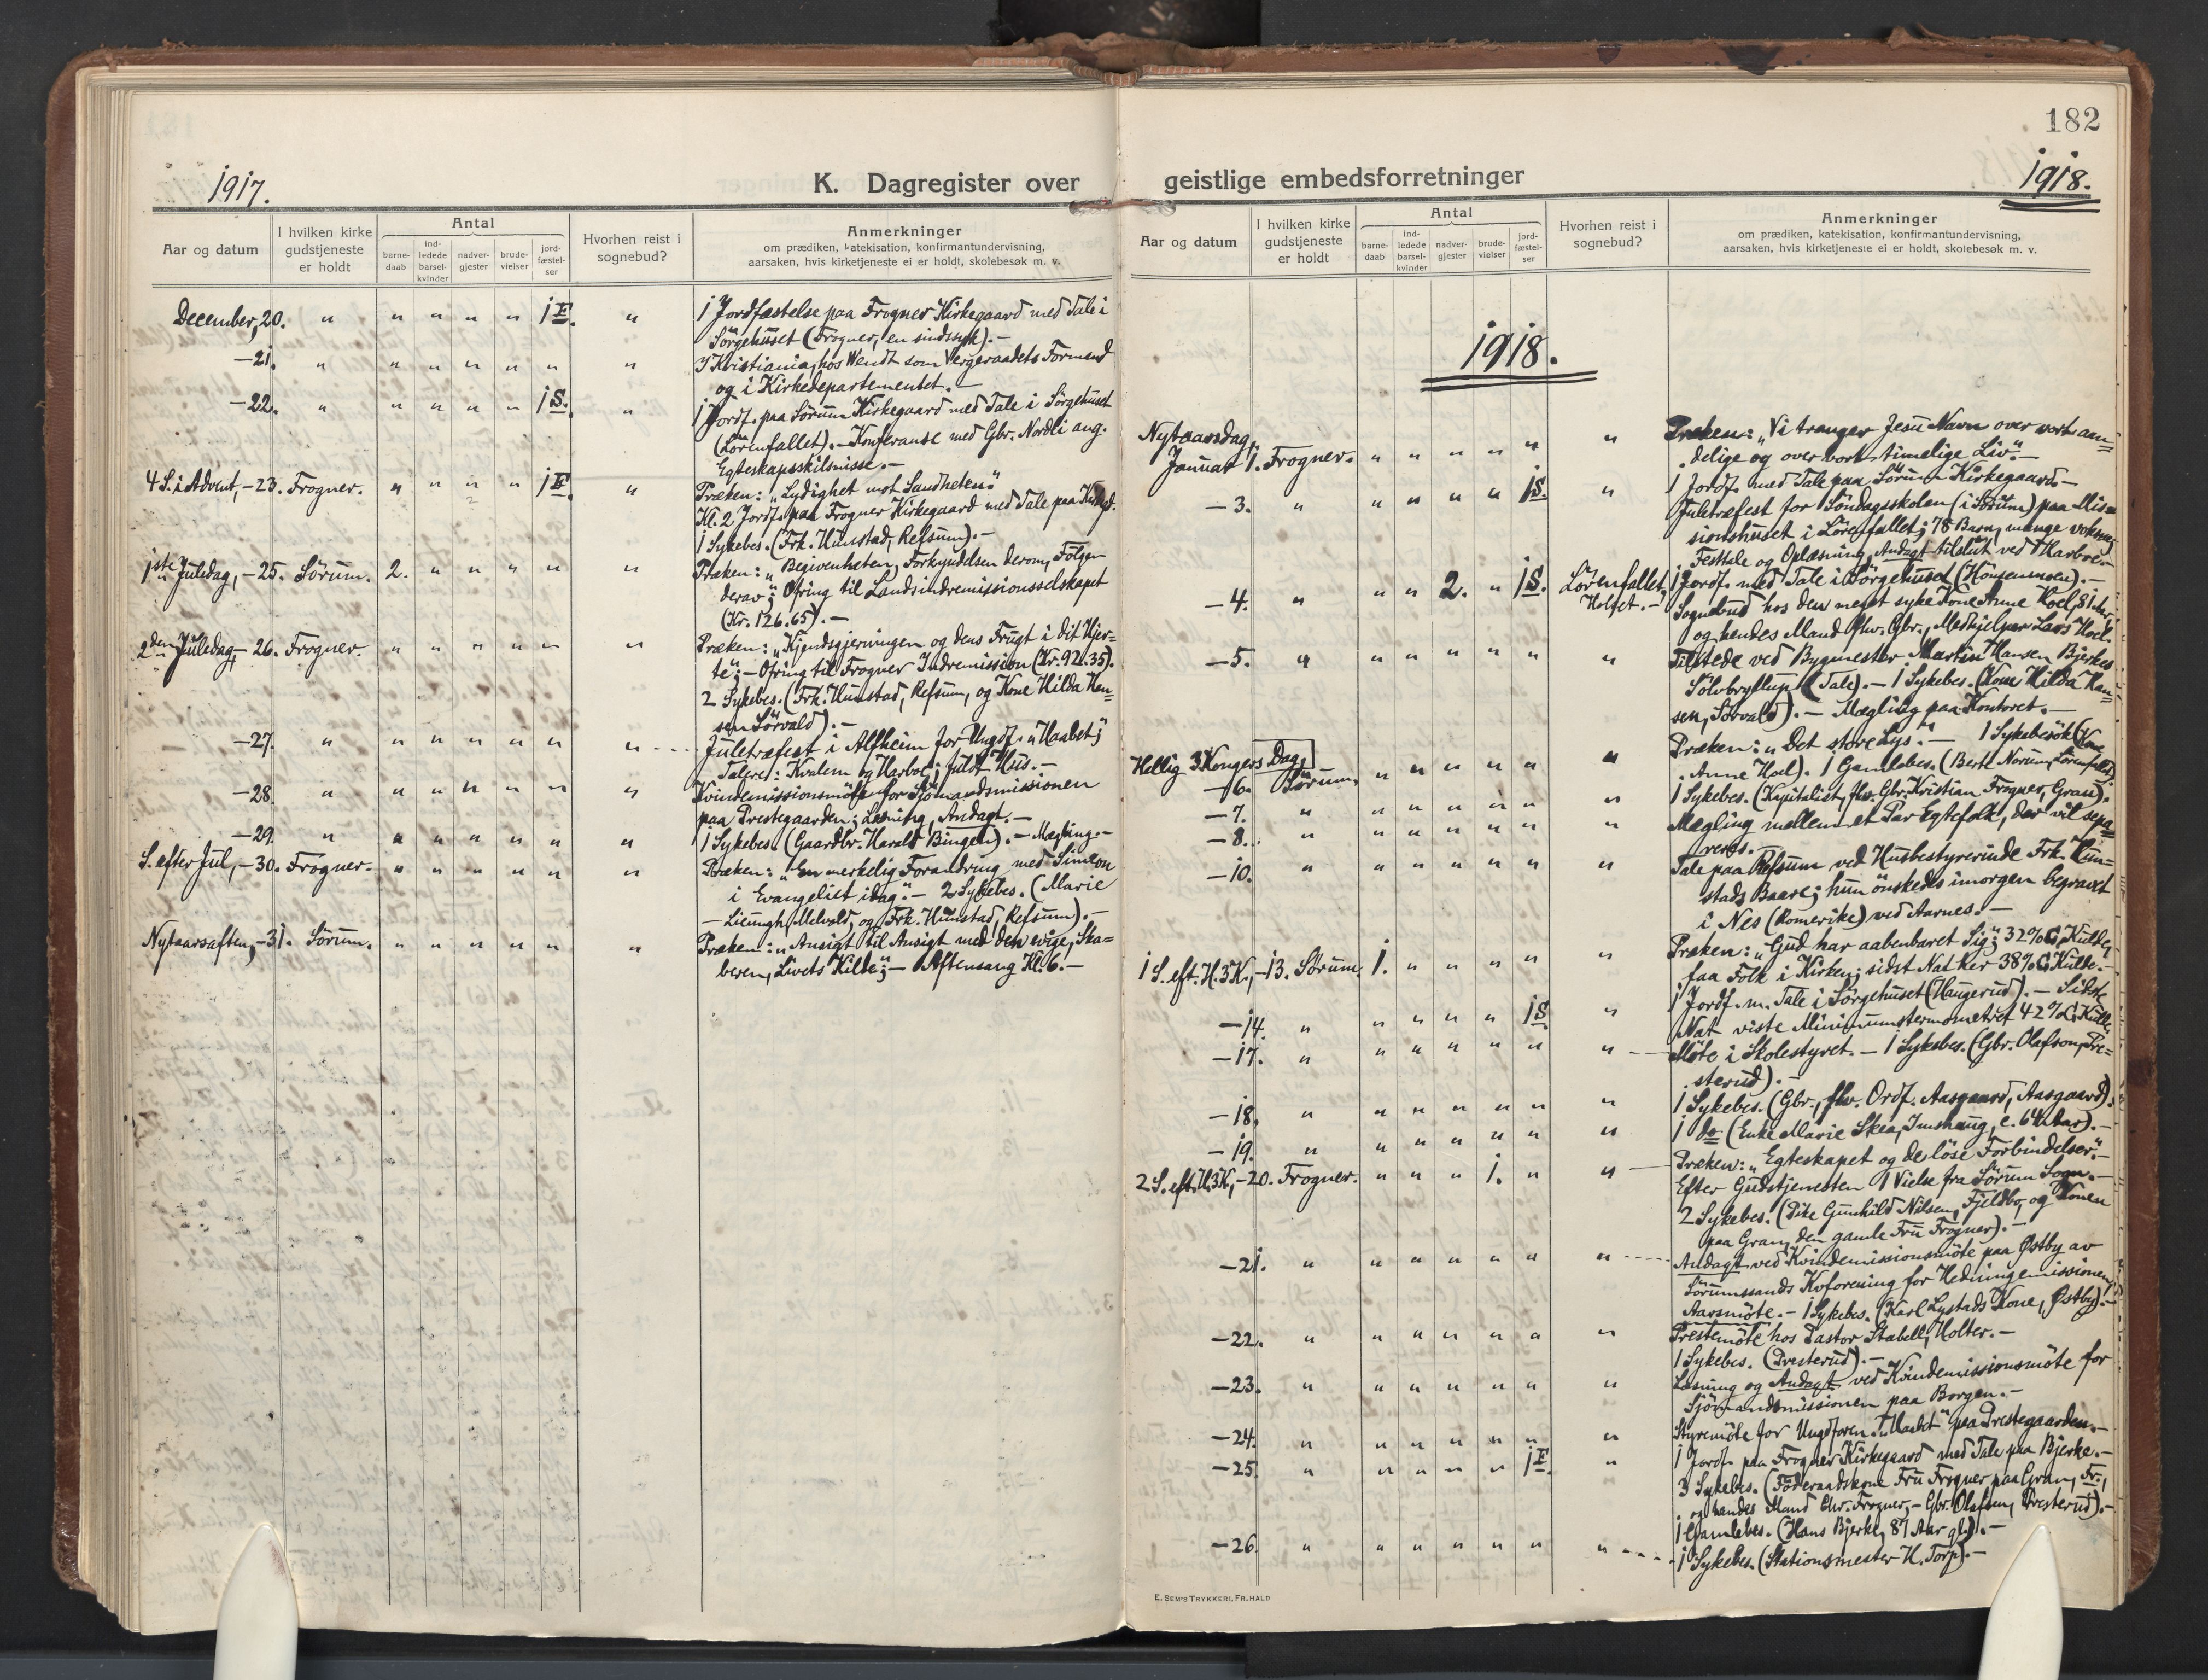 182
1917.
K. Dagregister over geistlige embedsforretninger
1918.
Aar og datum
I hvilken kirke gudstjeneste er holdt
Antal
barne-daab
ind-ledede barsel-kvinder
nadver-gjester
brude-vielser
jord-fæstel-ser
Hvorhen reist i sognebud?
Anmerkninger
om prædiken, katekisation, konfirmantundervisning,
aarsaken, hvis kirketjeneste ei er holdt, skolebesøk m. v.
December, 20. " " " " " 1 F. " 1 Jordfæstelse paa Frogner Kirkegaard med Tale i
Sörgehuset (Frogner, en sindssyk). –
–21. " " " " " " " I Kristiania, hos Wendt som Vergeraadets Formand
og i Kirkedepartementet. –
–22. " " " " " 1 S. " 1 Jordf. paa Sörum Kirkegaard med Tale i Sörgehuset
(Lörenfallet). – Konferanse med Gbr. Nordli ang.
Egteskapsskilsmisse. –
4 S. i Advent, –23. Frogner. " " " " 1 F. " Præken: „Lydighet mot Sandheten."
Kl. 2 Jordf. paa Frogner Kirkegaard med Tale paa
1 Sykebes. (Frk. Hunstad, Refsum). –
1ste Juledag, –25. Sörum. 2. " " " " " Præken: „Begivenheten, Forkyndelsen derom, Følgen
derav;" Ofring til Landsindremissionsselskapet
(Kr. 126.65). –
2den Juledag, –26. Frogner. " " " " " " Præken: „Kjendsgjerningen og dens Frugt i dit Hjer=
te;" – Ofring til Frogner Indremission (Kr. 92.35).
2 Sykebes. (Frk. Hunstad, Refsum, og Kone Hilda Han=
sen Sörvald). –
–27. " " " " " " " Juletræfest i Alfheim for Ungdf. „Haabet";
Talere: Kvalem og Harboe; fuldt Hus. –
–28. " " " " " " " Kvindemissionsmöte for Sjömandsmissionen
paa Prestegaarden; Læsning, Andagt. –
–29. " " " " " " " 1 Sykebes. (Gaardbr. Harald Bingen). – Mægling. –
S. efter Jul, –30. Frogner. " " " " " " Præken: „En merkelig Forandring med Simeon
i Evangeliet idag." – 2 Sykebes. (Marie
– Lieungh, Melvold, og Frk. Hunstad, Refsum). –
Nytaarsaften, –31. Sörum. " " " " " " Præken: „Ansigt til Ansigt med den evige, Ska=
beren, Livets Kilde;" – Aftensang Kl. 6. –
Aar og datum
I hvilken kirke gudstjeneste er holdt
Antal
barne-daab
ind-ledede barsel-kvinder
nadver-gjester
brude-vielser
jord-fæstel-ser
Hvorhen reist i sognebud?
Anmerkninger
om prædiken, katekisation, konfirmantundervisning,
aarsaken, hvis kirketjeneste ei er holdt, skolebesøk m. v.
1918.
Nytaarsdag,
Januar 1. Frogner. " " " " " " Præken: „Vi trænger Jesu Navn over vort aan=
delige og over vort timelige Liv." –
–3. " " " " " 1 S. " 1 Jordf. med Tale paa Sörum Kirkegaard. –
Juletræfest for Söndagsskolen (i Sörum) paa Mis=
sionshuset i Lörenfallet; 78 Barn, mange voksne.
Festtale og Oplæsning, Andagt tilslut ved Harboe. –
–4. " " " 2. " 1 S. Lörenfallet, 1 Jordf. med Tale i Sörgehuset (Hönsenmoen). –
Holfet. – Sognebud hos den meget syke Kone Anne Hoel, 81 Aar,
og hendes Mand fhv. Gbr., Medhjelper Lars Hoel.
–5. " " " " " " " Tilstede ved Bygmester Martin Hansen Bjerkes
Sölvbryllup (Tale). – 1 Sykebes. (Kone Hilda Han=
sen, Sörvald). – Mægling paa Kontoret. –
Hellig 3 Kongers Dag,
–6. Sörum. " " " " " " Præken: „Det store Lys." – 1 Sykebesök (Kone
Anne Hoel). 1 Gamlebes. (Berte Norum, Lörenfallet).
–7. " " " " " " " 1 Sykebes. (Kapitalist, fhv. Gbr. Kristian Frogner, Gran).
–8. " " " " " " " Mægling mellem et Par Egtefolk, der vil sepa=
reres. –
–10. " " " " " " " Tale paa Refsum ved Husbestyrerinde Frk. Hun=
stads Baare; hun önskedes imorgen begravet
i Nes (Romerike) ved Aarnes. –
1 S. eft. H. 3 K., –13. Sørum. 1. " " " " " Præken: „Gud har aabenbaret Sig;" 32% C. Kulde,
faa Folk i Kirken; sidst Nat her 38% C. Kulde. –
–14. " " " " " 1 S. " 1 Jordf. m. Tale i Sörgehuset (Haugerud). – Sidste
Nat viste Minimumstermometret 42% C. Kulde.
–17. " " " " " " " Möte i Skolestyret. – 1 Sykebes. (Gbr. Olafson, Pre=
sterud). –
–18. " " " " " " " 1 Sykebes. (Gbr., fhv. Ordf. Aasgaard, Aasgaard).
–19. " " " " " " " 1 do (Enke Marie Skea, Imshaug, c. 64 Aar). –
2 S. eft. H. 3 K., –20. Frogner. " " " 1. " " Præken: „Egteskapet og de löse Forbindelser." –
Efter Gudstjenesten 1 Vielse fra Sörum Sogn. –
2 Sykebes. (Pike Gunhild Nilsen, Fjeldbo, og Konen
paa Gran, den gamle Fru Frogner). –
–21. " " " " " " " Andagt ved Kvindemissionsmöte paa Østby av
Sörumsands Kvforening for Hedningemissionen,
Aarsmöte. – 1 Sykebes. (Karl Lystads Kone, Østby). –
–22. " " " " " " " Prestemöte hos Pastor Stabell, Holter. –
1 Sykebes. (Presterud). –
–23. " " " " " " " Læsning og Andagt ved Kvindemissionsmöte for
Sjömandsmissionen paa Borgen. –
–24. " " " " " " " Styremöte for Ungdforen. „Haabet" paa Prestegaarden. –
–25. " " " " " 1 F. " 1 Jordf. paa Frogner Kirkegaard med Tale paa Bjerke. –
3 Sykebes. (Föderaadskone Fru Frogner paa Gran, Fr.,
og hendes Mand Chr. Frogner, – Gbr. Olafsen, Presterud). –
1 Gamlebes. (Hans Bjerke, 87 Aar gl.). –
–26. " " " " " " " 1 Sykebes. (Stationsmester H. Torp). –
E. SEM'S TRYKKERI, FR.HALD